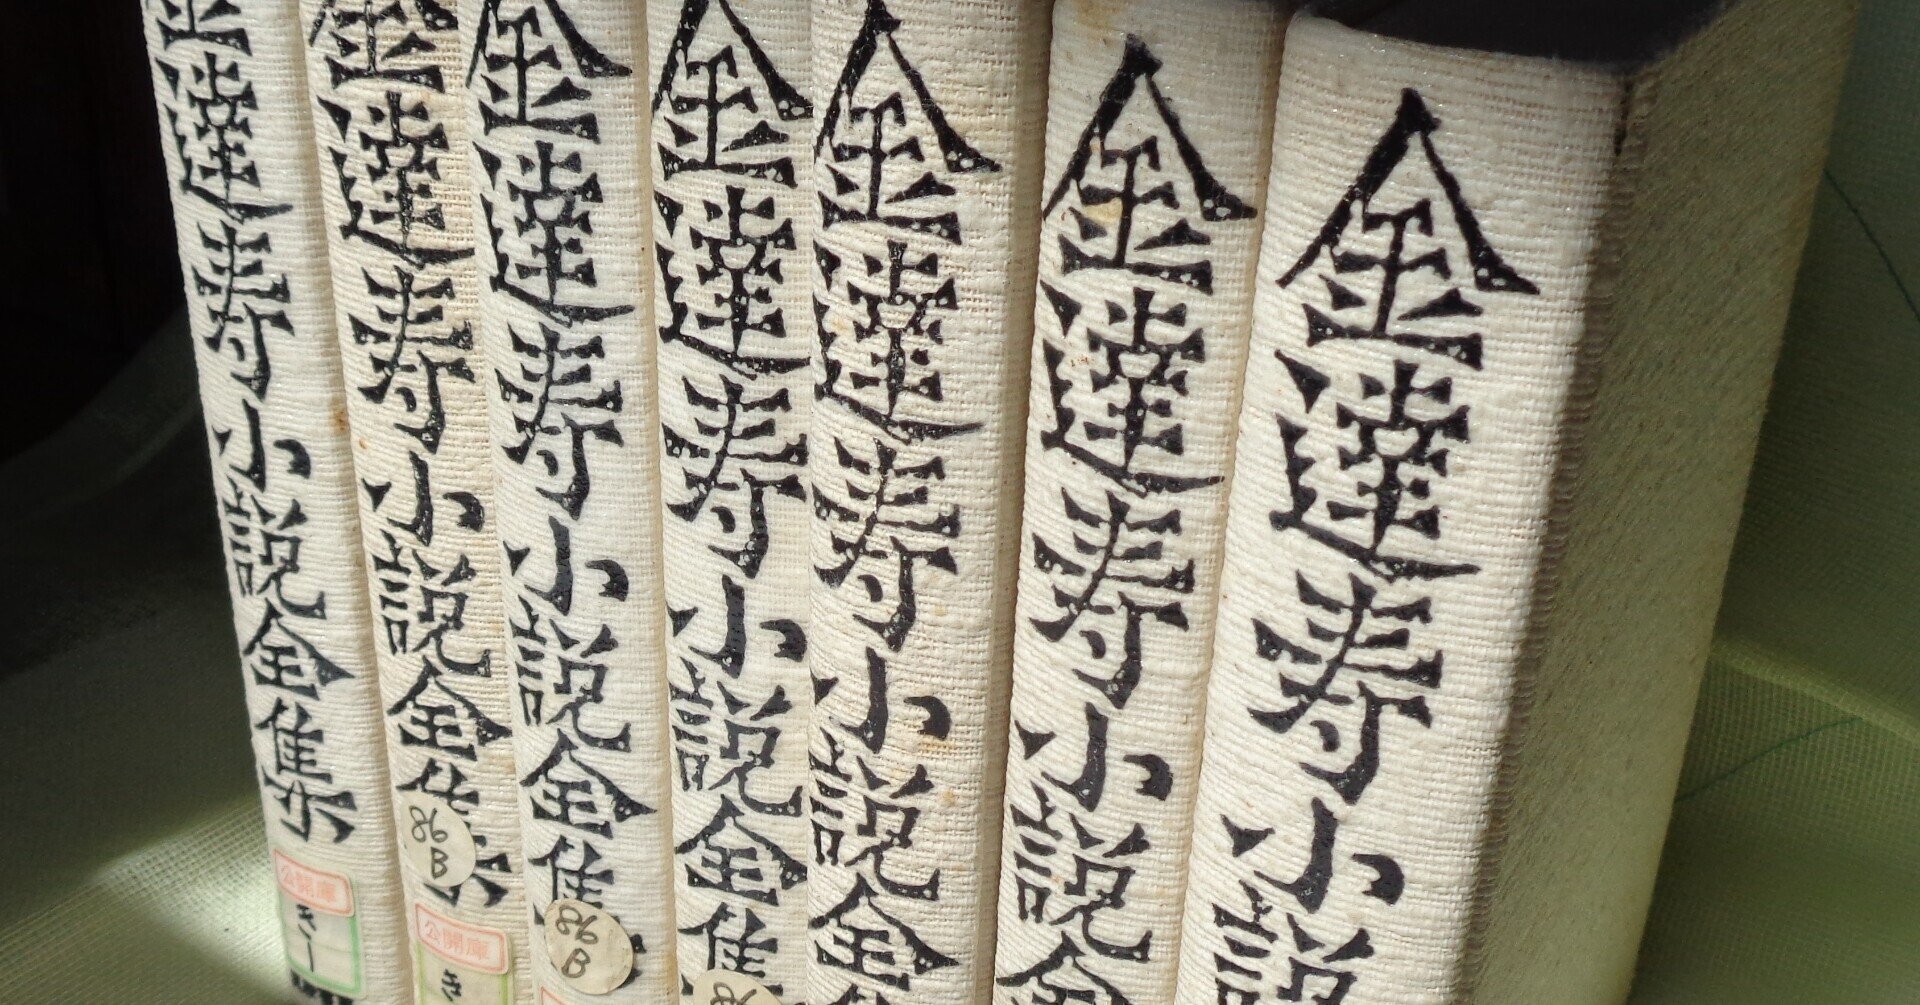 金達寿小説全集
公開庫
き一
金達寿小説全集
86
B
公開庫
き
金達寿小説全集
86
B
金達寿小説全集
86
金達寿小説全
金達寿小説全
金達寿小説